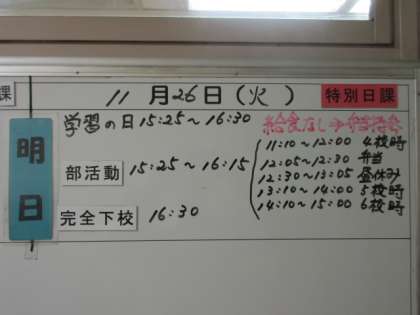 課
11月26日(火)
特別日課
明日
学習の日 15:25～16:30
給食なし→弁当持参
11:10～12:00 4校時
12:05～12:30 弁当
部活動 15:25～16:15
12:30～13:05 昼休み
13:10～14:00 5校時
14:10～15:00 6校時
完全下校 16:30